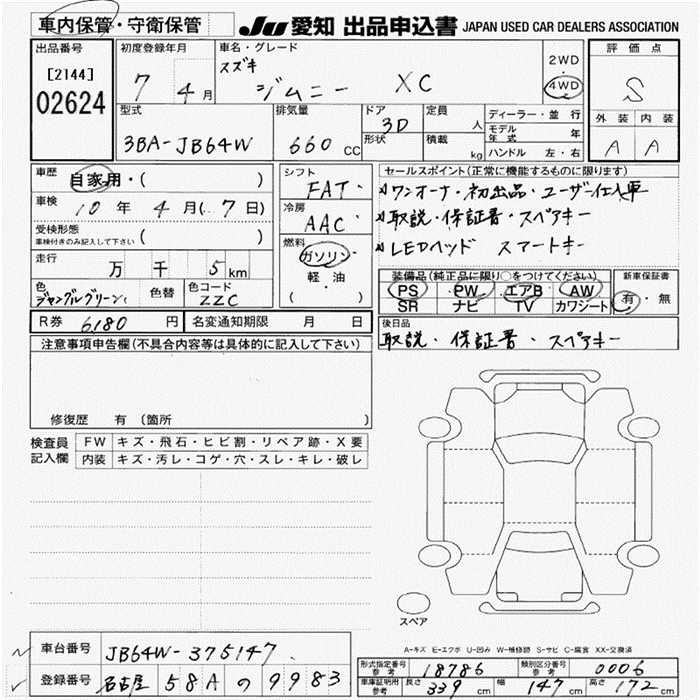 車内保管・守衛保管
JU 愛知 出品申込書 JAPAN USED CAR DEALERS ASSOCIATION
出品番号 初度登録年月 車名・グレード 評価点
[2144] 7 4月 スズキ ジムニー XC 2WD・4WD S
02624
型式 排気量 ドア 定員 ディーラー・並行 外装 内装
3BA-JB64W 660 CC 3D 人 モデル年式 年 A A
形状 積載 kg ハンドル 左・右
車歴 自家用・( ) シフト FAT セールスポイント(正常に機能するものに限ります)
車検 10年 4月(7日) 冷房 AAC ワンオーナ・初出品・ユーザー仕入車
受検形態 車検付きのみ記入して下さい ( ) 取説・保証書・スペアキー
燃料 ガソリン・軽・油 ( ) LEDヘッド スマートキー
走行 万 千 5km
装備品(純正品に限り○をつけてください) 新車保証書
色 ジャングルグリーン 色替 色コード ZZC PS PW エアB AW 有・無
SR ナビ TV カワシート
R券 6,180 円 名変通知期限 月 日 後日品
取説・保証書・スペアキー
注意事項申告欄(不具合内容等は具体的に記入して下さい)
修復歴 有 (箇所
検査員記入欄 FW キズ・飛石・ヒビ割・リペア跡・X要
内装 キズ・汚レ・コゲ・穴・スレ・キレ・破レ
スペア
A-キズ E-エクボ U-凹み W-補修跡 S-サビ C-腐食 XX-交換済
車台番号 JB64W-375147
登録番号 名古屋 58A の 9983
形式指定番号 参考 18786 類別区分番号 参考 0006
車庫証明用 参考 長さ 339 cm 幅 147 cm 高さ 172 cm